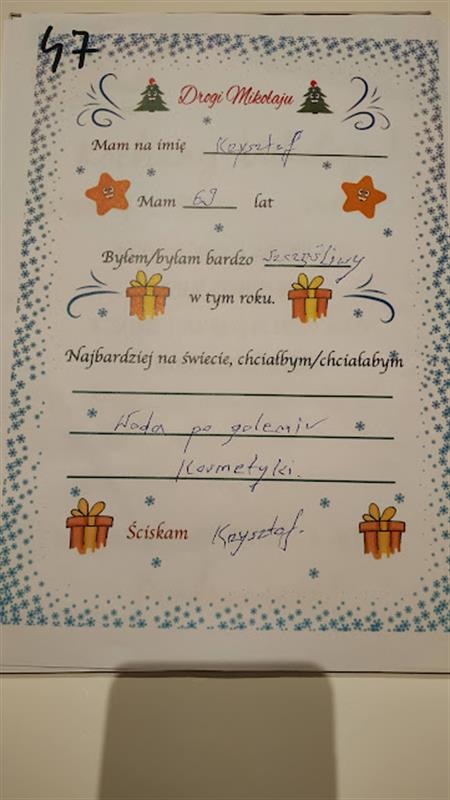 47
Drogi Mikołaju
Mam na imię Krzysztof
Mam 69 lat
Byłem/byłam bardzo szczęśliwy
w tym roku.
Najbardziej na świecie, chciałbym/chciałabym
Woda po goleniu
Kosmetyki.
Ściskam Krzysztof.